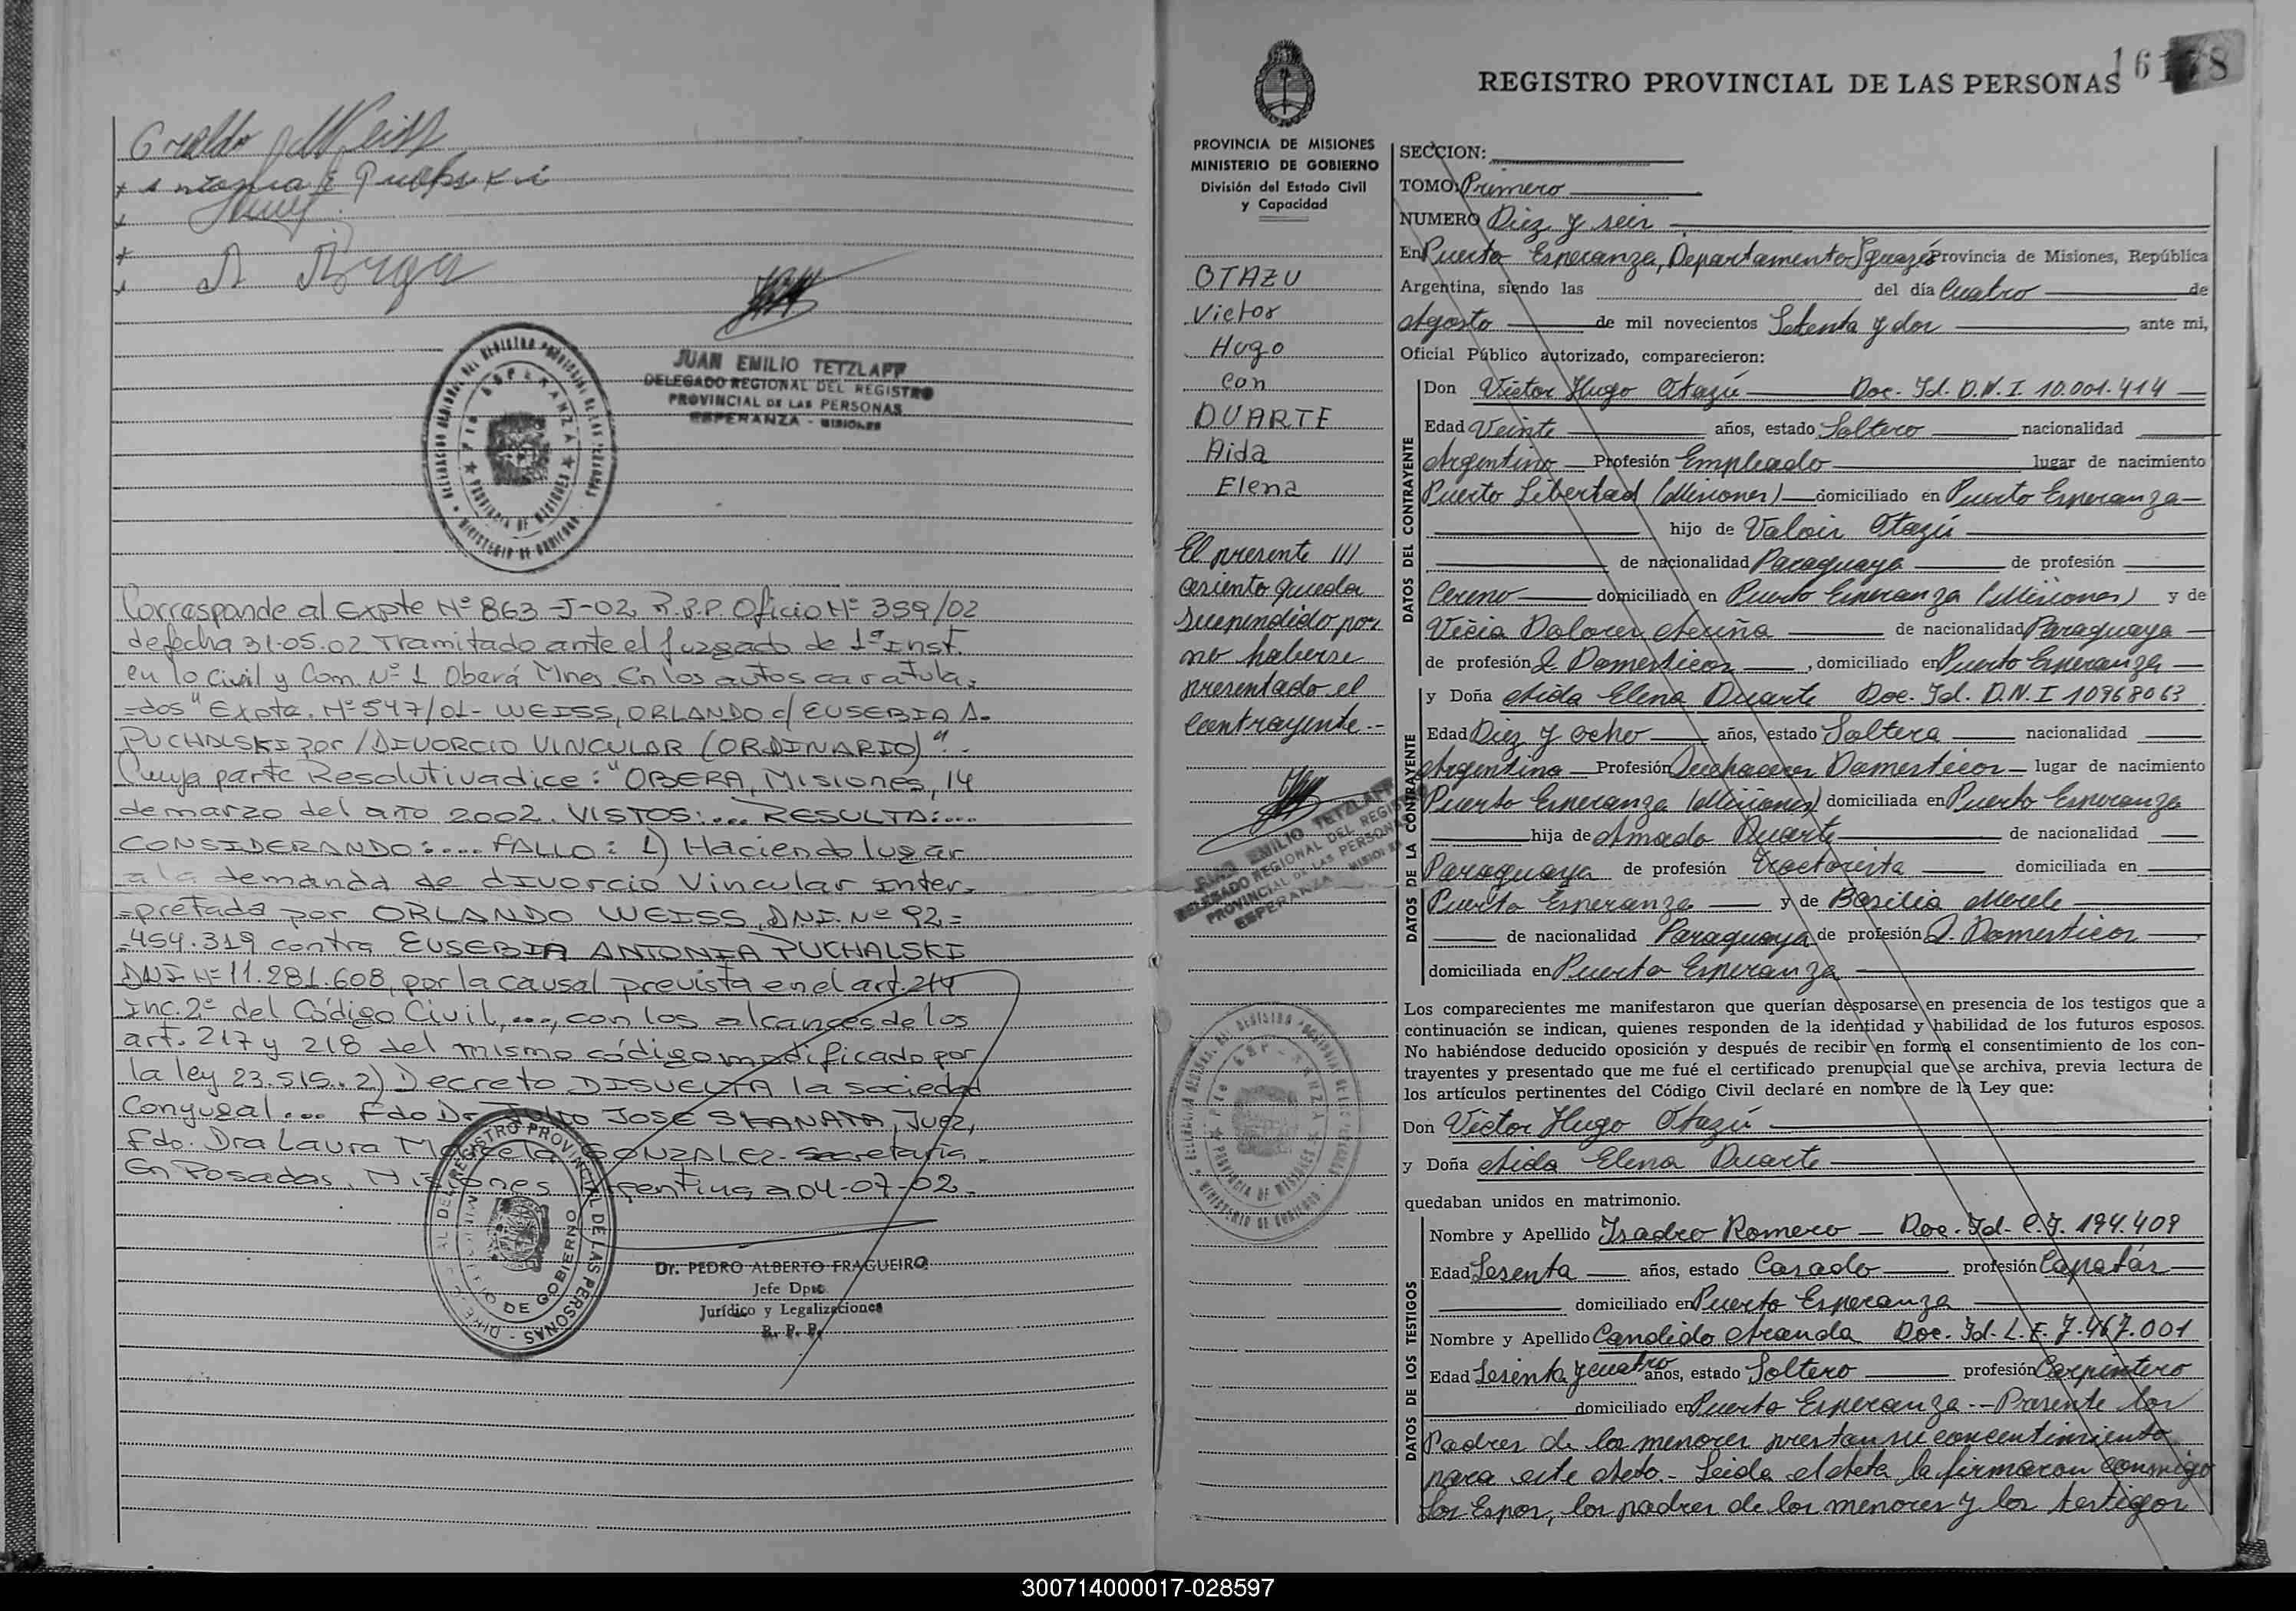 Orlando Weiss
Antonia E Puchalski
JUAN EMILIO TETZLAFF
DELEGADO REGIONAL DEL REGISTRO
PROVINCIAL DE LAS PERSONAS
ESPERANZA - MISIONES
Corresponde al Expte Nº 863-J-02 R.P.P. Oficio Nº 359/02
de fecha 31-05-02 Tramitado ante el Juzgado de 1ª Inst.
en lo Civil y Com. Nº 1 Oberá Mnes. En los autos caratula=
=dos "Expte. Nº 547/01- WEISS, ORLANDO c/ EUSEBIA A.
PUCHALSKI por /DIVORCIO VINCULAR (ORDINARIO)".-
Cuya parte Resolutiva dice: "OBERA, Misiones, 14
de marzo del año 2002. VISTOS:... RESULTA:...
CONSIDERANDO:.... FALLO: 1) Haciendo lugar
a la demanda de divorcio Vincular inter=
=pretada por ORLANDO WEISS, DNI. Nº 92=
=454.319 contra EUSEBIA ANTONIA PUCHALSKI
DNI Nº 11.281.608, por la causal prevista en el art. 214
Inc. 2º del Código Civil, ..., con los alcances de los
art. 217 y 218 del mismo código modificado por
la ley 23.515.. 2) Decreto DISUELTA la sociedad
Conyugal... Fdo Dr. Julio JOSE SKANATA, Juez,
Fdo. Dra Laura Marcela GONZALEZ- Secretaria.
En Posadas, Misiones Argentina a 04-07-02.
MINISTERIO DE GOBIERNO
Dr. PEDRO ALBERTO FRAGUEIRO
Jefe Dpto.
Jurídico y Legalizaciones
R. P. P.
REGISTRO PROVINCIAL DE LAS PERSONAS
PROVINCIA DE MISIONES
MINISTERIO DE GOBIERNO
División del Estado Civil
y Capacidad
OTAZU
Victor
Hugo
con
DUARTE
Aida
Elena
El presente ///
asiento queda
suspendido por
no haberse
presentado el
contrayente.-
JUAN EMILIO TETZLAFF
DELEGADO REGIONAL DEL REGISTRO
PROVINCIAL DE LAS PERSONAS
ESPERANZA - MISIONES
SECCION:
TOMO: Primero
NUMERO Diez y seis
En Puerto Esperanza, Departamento Iguazú Provincia de Misiones, República
Argentina, siendo las del día Cuatro de
Agosto de mil novecientos Setenta y dos, ante mi,
Oficial Público autorizado, comparecieron:
DATOS DEL CONTRAYENTE
Don Víctor Hugo Otazú Doc. Id. D.N.I. 10.001.414
Edad Veinte años, estado Soltero nacionalidad
Argentino Profesión Empleado lugar de nacimiento
Puerto Libertad (Misiones) domiciliado en Puerto Esperanza
hijo de Valois Otazú
de nacionalidad Paraguaya de profesión
Sereno domiciliado en Puerto Esperanza (Misiones) y de
Dolores de nacionalidad Paraguaya
de profesión Q. Domesticos, domiciliado en Puerto Esperanza
DATOS DE LA CONTRAYENTE
y Doña Aida Elena Duarte Doc. Id. D.N.I 10968063
Edad Diez y ocho años, estado Soltera nacionalidad
Argentina Profesión Quehaceres Domesticos lugar de nacimiento
Puerto Esperanza (Misiones) domiciliada en Puerto Esperanza
hija de Amado Duarte de nacionalidad
Paraguaya de profesión Tractorista domiciliada en
Puerto Esperanza y de Basilia
de nacionalidad Paraguaya de profesión Q. Domesticos
domiciliada en Puerto Esperanza
Los comparecientes me manifestaron que querían desposarse en presencia de los testigos que a
continuación se indican, quienes responden de la identidad y habilidad de los futuros esposos.
No habiéndose deducido oposición y después de recibir en forma el consentimiento de los con-
trayentes y presentado que me fué el certificado prenupcial que se archiva, previa lectura de
los artículos pertinentes del Código Civil declaré en nombre de la Ley que:
Don Víctor Hugo Otazú
y Doña Aida Elena Duarte
quedaban unidos en matrimonio.
DATOS DE LOS TESTIGOS
Nombre y Apellido Isadro Romero Doc. Id. C.I. 194.409
Edad Sesenta años, estado Casado profesión Capatás
domiciliado en Puerto Esperanza
Nombre y Apellido Candido Aranda Doc. Id. L.E. 7.467.001
Edad Sesenta y cuatro años, estado Soltero profesión Carpintero
domiciliado en Puerto Esperanza -- Presente los
Padres de los menores prestan su concentimiento
para este Acto.- Leida el Acta, la firmaron conmigo
los Espos, los padres de los menores y los testigos
300714000017-028597